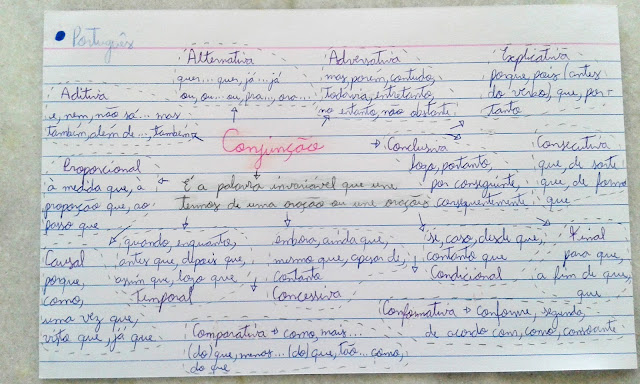 Português
Alternativa
quer... quer, já... já
ou, ou... ou, ora... ora...
Adversativa
mas, porém, contudo,
todavia, entretanto,
no entanto, não obstante
Explicativa
porque, pois (antes
do verbo), que, por-
tanto
Aditiva
e, nem, não só... mas
também, além de..., também
Conjunção
É a palavra invariável que une
termos de uma oração ou une orações
Conclusiva
logo, portanto,
por conseguinte,
consequentemente
Consecutiva
que, de sorte
que, de forma
que
Proporcional
à medida que, à
proporção que, ao
passo que
Causal
porque,
como,
uma vez que,
visto que, já que
quando, enquanto,
antes que, depois que,
assim que, logo que
Temporal
embora, ainda que,
mesmo que, apesar de,
contanto
Concessiva
se, caso, desde que,
contanto que
Condicional
Final
para que,
a fim de que,
que
Comparativa → como, mais...
(do) que, menos... (do) que, tão... como,
do que
Conformativa → conforme, segundo,
de acordo com, como, consoante